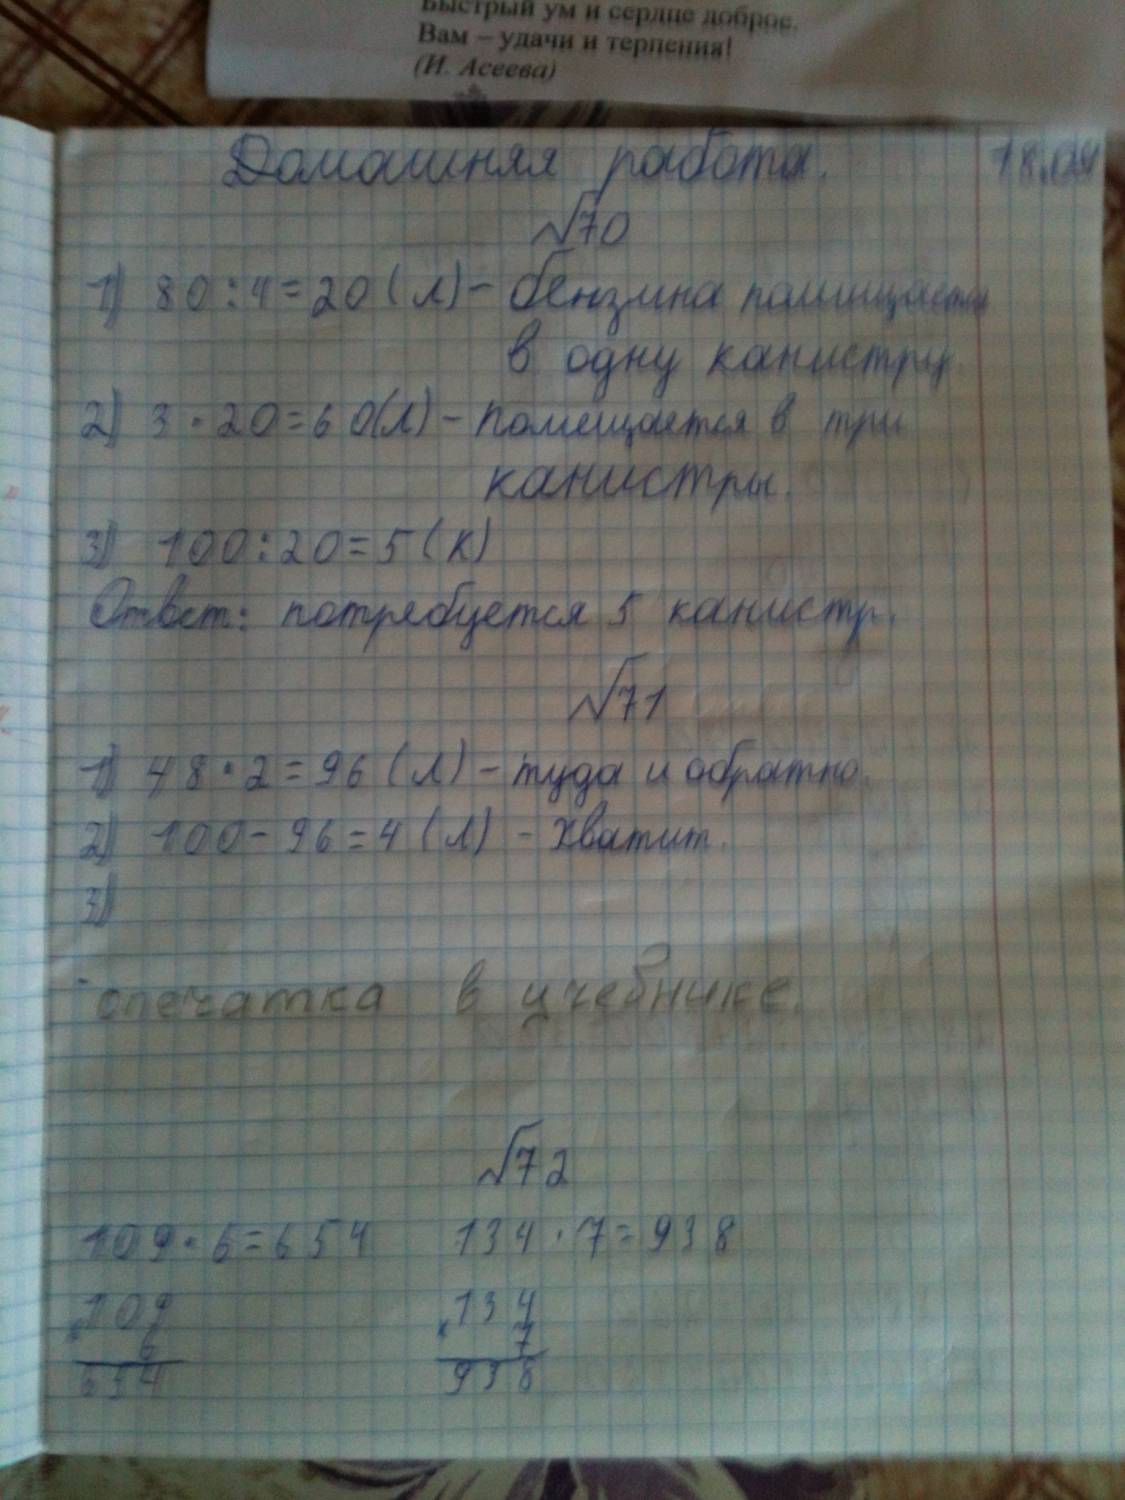 Быстрый ум и сердце доброе.
Вам – удачи и терпения!
(И. Асеева)
Домашняя работа. 18.04
№70
1) 80:4=20(л)- бензина помищается
в одну канистру.
2) 3·20=60(л)- помещается в три
канистры.
3) 100:20=5(к)
Ответ: потребуется 5 канистр.
№71
1) 48·2=96(л)- туда и обратно.
2) 100-96=4(л) - хватит.
3)
опечатка в учебнике.
№72
109·6=654 134·7=938
109 134
× 6 × 7
654 938